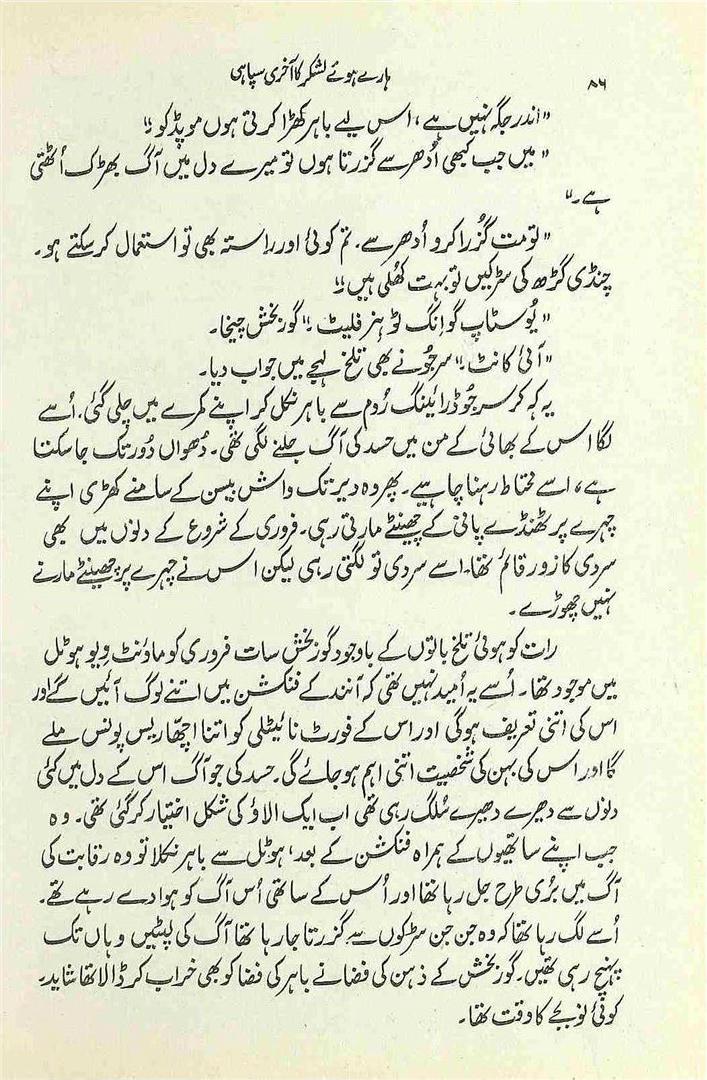 ہارے ہوئے لشکر کا آخری سپاہی ۸۶
"اندر جگہ نہیں ہے، اس لیے باہر کھڑا کرتی ہوں موپڈ کو۔"
"میں جب کبھی اُدھر سے گزرتا ہوں تو میرے دل میں آگ بھڑک اُٹھتی
ہے۔"
"تو مت گُزرا کرو اُدھر سے۔ تم کوئی اور راستہ بھی تو استعمال کر سکتے ہو۔
چنڈی گڑھ کی سڑکیں تو بہت کھُلی ہیں۔"
"یُو سٹاپ گواِنگ ٹو ہِنر فلیٹ۔" گوربخش چیخا۔
"آئی کانٹ۔" سرجُو نے بھی تلخ لہجے میں جواب دیا۔
یہ کہہ کر سرجُو ڈرائینگ رُوم سے باہر نکل کر اپنے کمرے میں چلی گئی۔ اُسے
لگا اس کے بھائی کے من میں حسد کی آگ جلنے لگی تھی۔ دُھواں دُور تک جا سکتا
ہے، اسے محتاط رہنا چاہیے۔ پھر وہ دیر تک واش بیسن کے سامنے کھڑی اپنے
چہرے پر ٹھنڈے پانی کے چھینٹے مارتی رہی۔ فروری کے شروع کے دلوں میں بھی
سردی کا زور قائم تھا۔ اسے سردی تو لگتی رہی لیکن اس نے چہرے پر چھینٹے مارنے
نہیں چھوڑے۔
رات کو ہوئی تلخ باتوں کے باوجود گوربخش سات فروری کو ماؤنٹ ویو ہوٹل
میں موجود تھا۔ اُسے یہ اُمید نہیں تھی کہ آنند کے فنکشن میں اتنے لوگ آئیں گے اور
اس کی اتنی تعریف ہوگی اور اس کے فورٹ نائیٹلی کو اتنا اچھّا ریس پونس ملے
گا اور اس کی بہن کی شخصیت اتنی اہم ہو جائے گی۔ حسد کی جو آگ اس کے دل میں کئی
دلوں سے دھیرے دھیرے سُلگ رہی تھی اب ایک الاؤ کی شکل اختیار کر گئی تھی۔ وہ
جب اپنے ساتھیوں کے ہمراہ فنکشن کے بعد، ہوٹل سے باہر نکلا تو وہ رقابت کی
آگ میں بُری طرح جل رہا تھا اور اُس کے ساتھی اُس آگ کو ہوا دے رہے تھے۔
اُسے لگ رہا تھا کہ وہ جن جن سڑکوں سے گزرتا جا رہا تھا آگ کی لپٹیں وہاں تک
پہنچ رہی تھیں۔ گوربخش کے ذہن کی فضا نے باہر کی فضا کو بھی خراب کر ڈالا تھا شاید۔
کوئی نو بجے کا وقت تھا۔